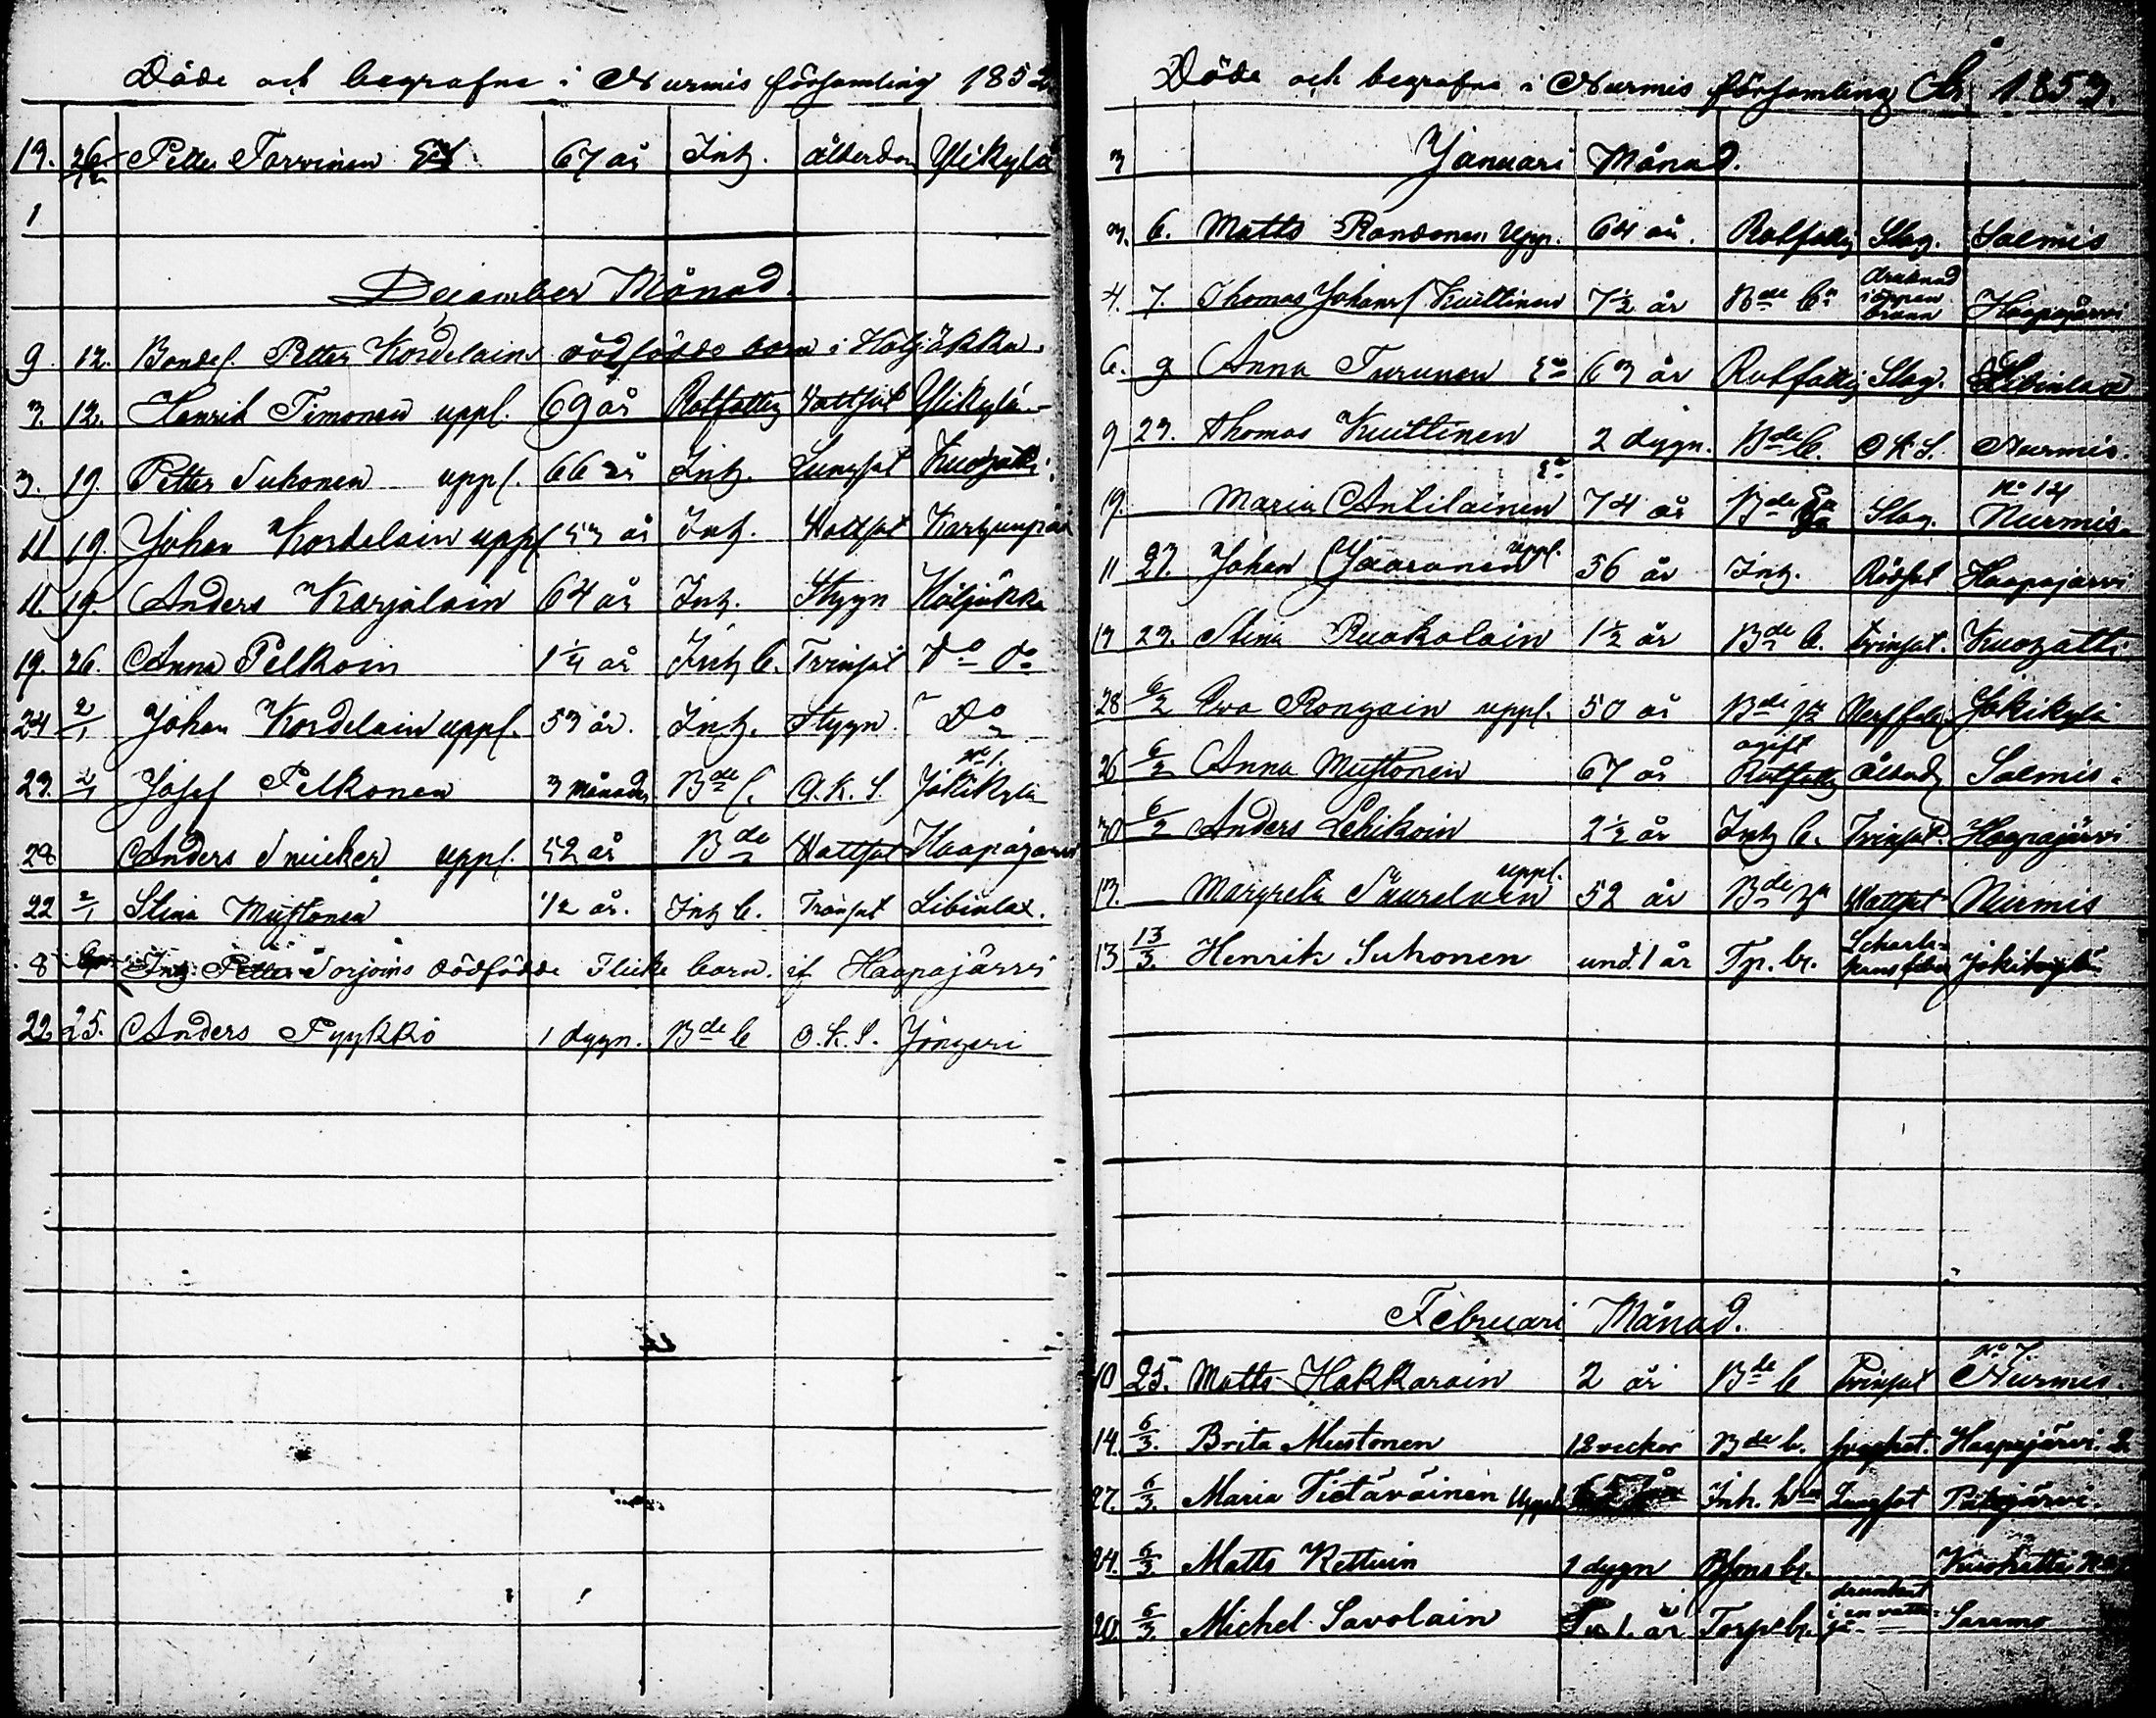 Döde och begrafne i Nurmis församling 1852
19. 26/12 Petter Torvinen 67 år Inh. ålderdom Ylikylä
1
December Månad
9. 12. Bondes. Petter Kordelains dödfödde barn i Höljäkkä.
3. 12. Henrik Timonen uppl. 69 år Rotfattig Vattsot Ylikylä
3. 19. Petter Suhonen uppl. 66 år Inh. Lungsot Kuohatti
11 19. Johan Kordelain uppl. 53 år Inh. Wattsot
11. 19. Anders Karjalain 64 år Inh. Stygn Höljäkkä
19. 26. Anna Pelkoin 1 1/4 år Inh b. Trinsot Do Do
24 2/1 Johan Kordelain uppl. 53 år. Inh. Stygn Do
23. 2/1 Josef Pelkonen 3 månader Bde b. O.K.S. No 1. Jokikylä
28 Anders Snicker uppl. 52 år Bde Wattsot Haapajärvi
22 2/1 Stina Mustonen 1/2 år. Inh b. Trånsot Libinlax.
8 Inh. Petter Torjoins dödfödde Flicke barn. if Haapajärvi
22. 25. Anders Pyykkö 1 dygn. Bde b O.K.S. Jongeri
Döde och begrafne i Nurmis församling År 1853.
3 Januari Månad.
3. 6. Matts Rondonen Upp. 64 år. Rotfattig Slag. Salmis
4. 7. Thomas Johans. Kuittinen 7 1/2 år Bde bn drunknad i öppen brunn Haapajärvi
6. 9 Anna Turunen Ea 63 år Rotfattig Slag. Libinlax
9 23. Thomas Kuittinen 2 dygn. Bde b. O K S. Nurmis.
19. — Maria Antilainen Ea 74 år Bde Slag. No 14 Nurmis.
11 27. Johan Jaaranen uppl. 56 år Inh. Rödsot Haapajärvi
13 23. Stina Ruokolain 1 1/2 år Bde b. trinsot. Kuohatti
28 6/2 Eva Rongain uppl. 50 år Bde Jokikylä
26 6/2 Anna Mustonen 67 år ogift Rotfattig Ålderd Salmis.
30 6/2 Anders Lehikoin 2 1/2 år Inh b. Trinsot. Haapajärvi
13. — Margreta Saarelain uppl. 52 år Bde Wattsot Nurmis
13 13/3. Henrik Suhonen und. 1 år Tp. br. Scharlakansfeber Jokikylä
Februari Månad.
10 25. Matts Hakkarain 2 år Bde b Trinsot No 7. Nurmis.
14. 6/3. Brita Mustonen 12 veckor Bde b. Haapajärvi. 2.
27. 6/3. Maria Tietäväinen Uppl. Inh. Lungsot Pitkäjärvi.
24. 6/3. Matts Kettuin 1 dygn Kuohatti
20. 6/3. Michel Savolain 1 år Torp. br. drunknat i en vatten Saramo